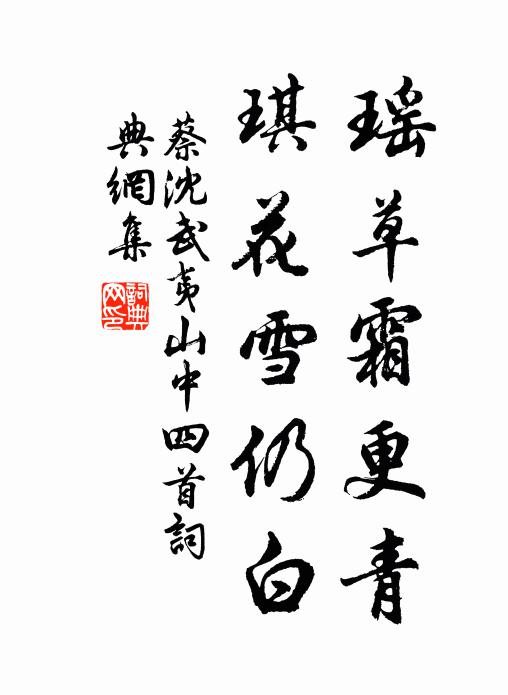 瑶草霜更青
琪花雪仍白
蔡沈武夷山中四首詞
典網集
詞典網印